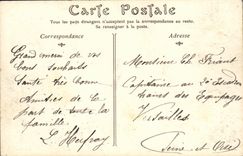 Carte Postale
Tous les pays étrangers n'acceptent pas la correspondance au recto.
Se renseigner à la poste.
Correspondance
Adresse
Grand merci de vos
bons souhaits
Santé très bonne
Amitiés de la
part de toute la
famille.
Monsieur
Capitaine au
train des Équipages
Versailles
Seine et Oise